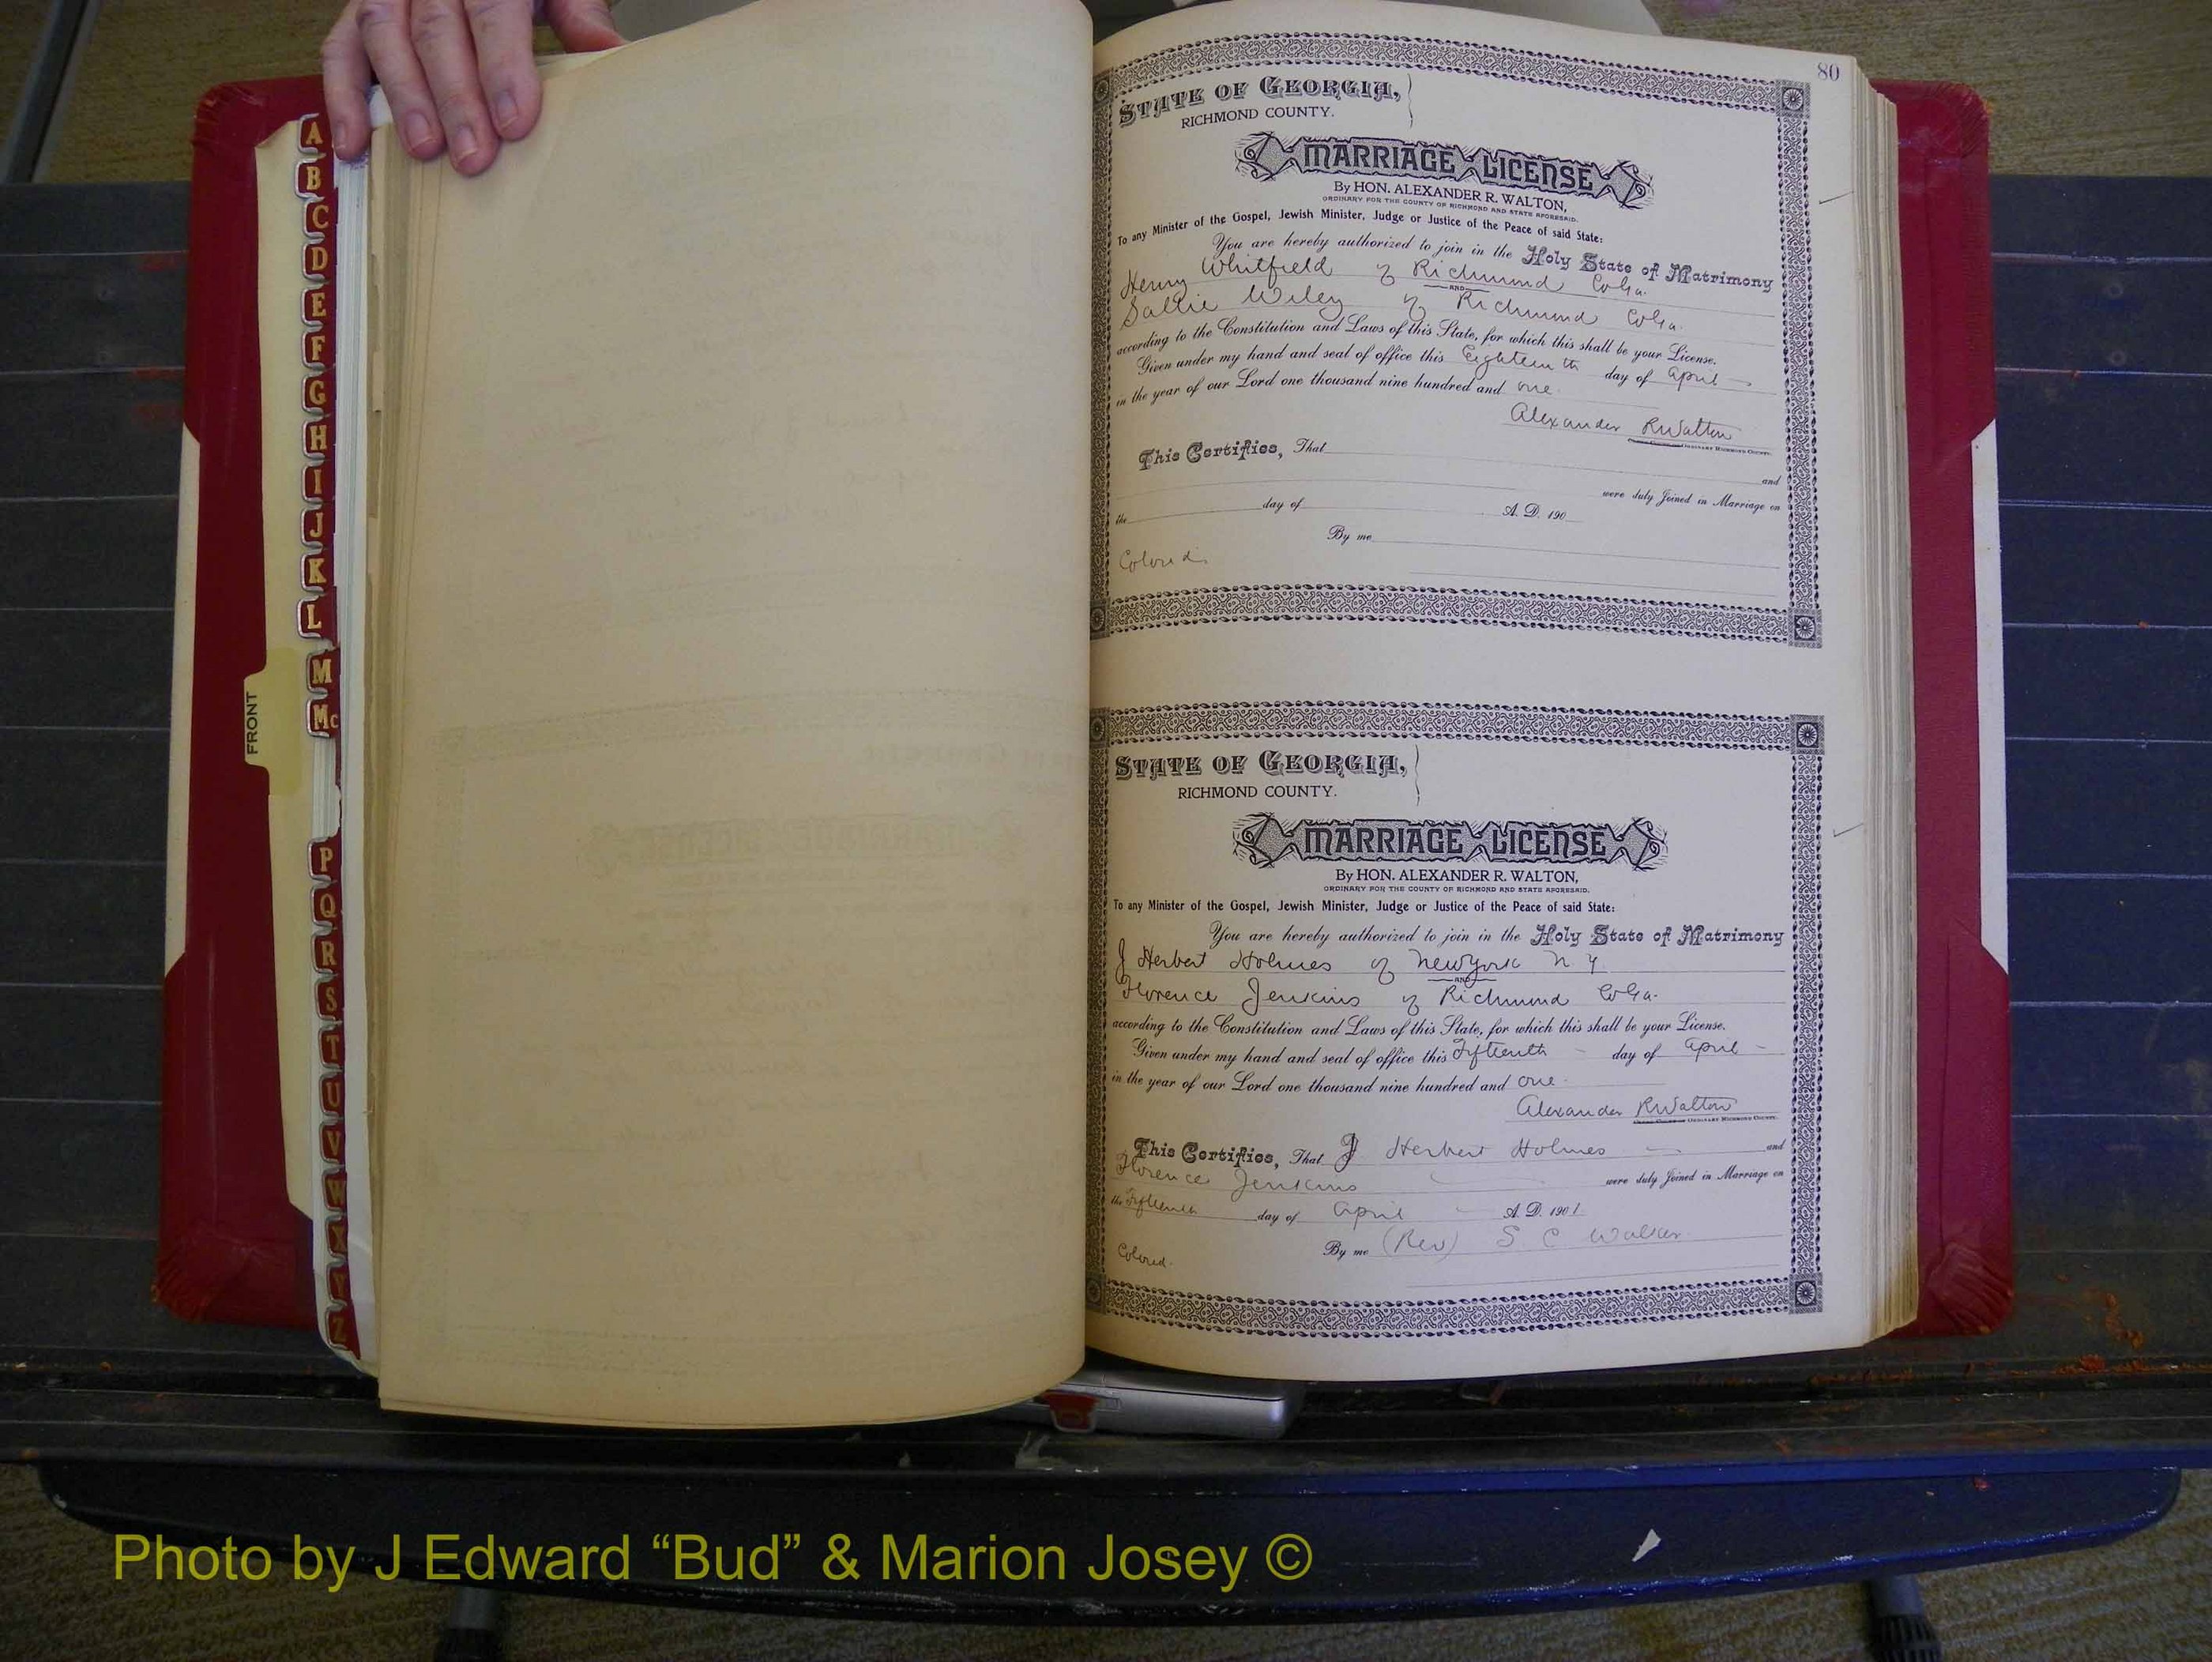 A
B
C
D
E
F
G
H
I
J
K
L
M
Mc
P
Q
R
S
T
U
V
W
X
Y
Z
FRONT
80
STATE OF GEORGIA,
RICHMOND COUNTY.
MARRIAGE LICENSE
By HON. ALEXANDER R. WALTON,
ORDINARY FOR THE COUNTY OF RICHMOND AND STATE AFORESAID.
To any Minister of the Gospel, Jewish Minister, Judge or Justice of the Peace of said State:
You are hereby authorized to join in the Holy State of Matrimony
Henry Whitfield of Richmond Co Ga.
AND
Sallie Wiley of Richmond Co Ga.
according to the Constitution and Laws of this State, for which this shall be your License.
Given under my hand and seal of office this Eighteenth day of April
in the year of our Lord one thousand nine hundred and one.
Alexander R Walton
ORDINARY RICHMOND COUNTY.
This Certifies, That
and
were duly Joined in Marriage on
the day of A. D. 190
By me
Colored.
STATE OF GEORGIA,
RICHMOND COUNTY.
MARRIAGE LICENSE
By HON. ALEXANDER R. WALTON,
ORDINARY FOR THE COUNTY OF RICHMOND AND STATE AFORESAID.
To any Minister of the Gospel, Jewish Minister, Judge or Justice of the Peace of said State:
You are hereby authorized to join in the Holy State of Matrimony
J Herbert Holmes of New York N Y.
AND
Florence Jenkins of Richmond Co Ga.
according to the Constitution and Laws of this State, for which this shall be your License.
Given under my hand and seal of office this Fifteenth - day of April -
in the year of our Lord one thousand nine hundred and one.
Alexander R Walton
ORDINARY RICHMOND COUNTY.
This Certifies, That J Herbert Holmes and
Florence Jenkins were duly Joined in Marriage on
the Fifteenth day of April A. D. 1901.
By me (Rev) S. C Walker
Colored.
Photo by J Edward “Bud” & Marion Josey ©